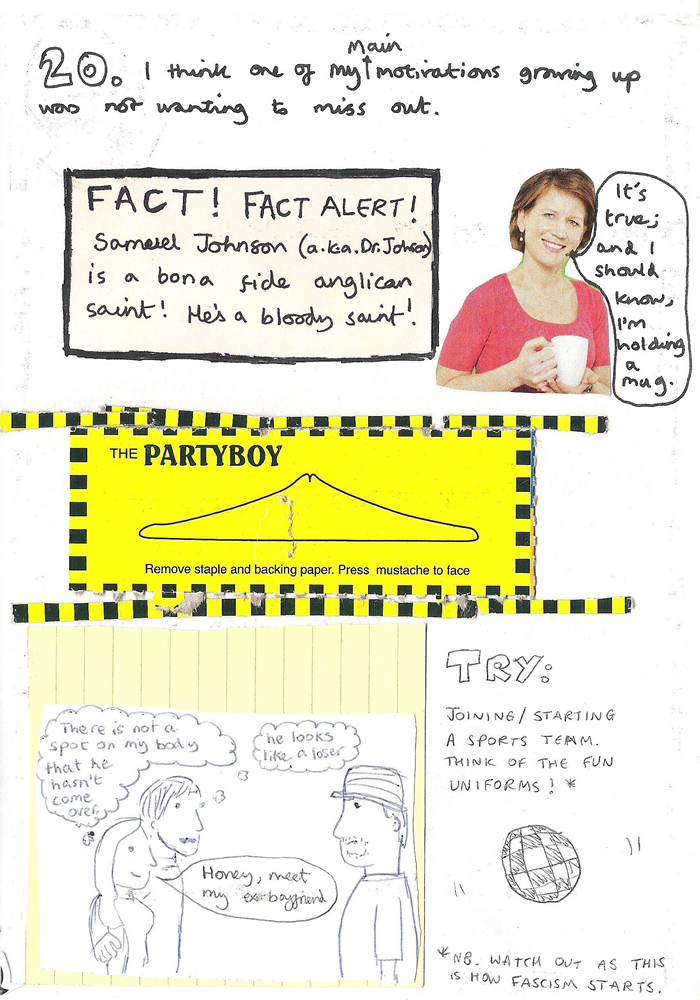 20. I think one of my Main motivations growing up
was not wanting to miss out.
FACT! FACT ALERT!
Samuel Johnson (a.k.a. Dr. Johson)
is a bona fide anglican
saint! He's a bloody saint!
It's
true;
and I
should
know,
I'm
holding
a
mug.
THE PARTYBOY
Remove staple and backing paper. Press mustache to face
There is not a
spot on my body
that he
hasn't
come
over.
he looks
like a loser
Honey, meet
my ex-boyfriend
TRY:
JOINING/STARTING
A SPORTS TEAM.
THINK OF THE FUN
UNIFORMS! *
*NB. WATCH OUT AS THIS
IS HOW FASCISM STARTS.